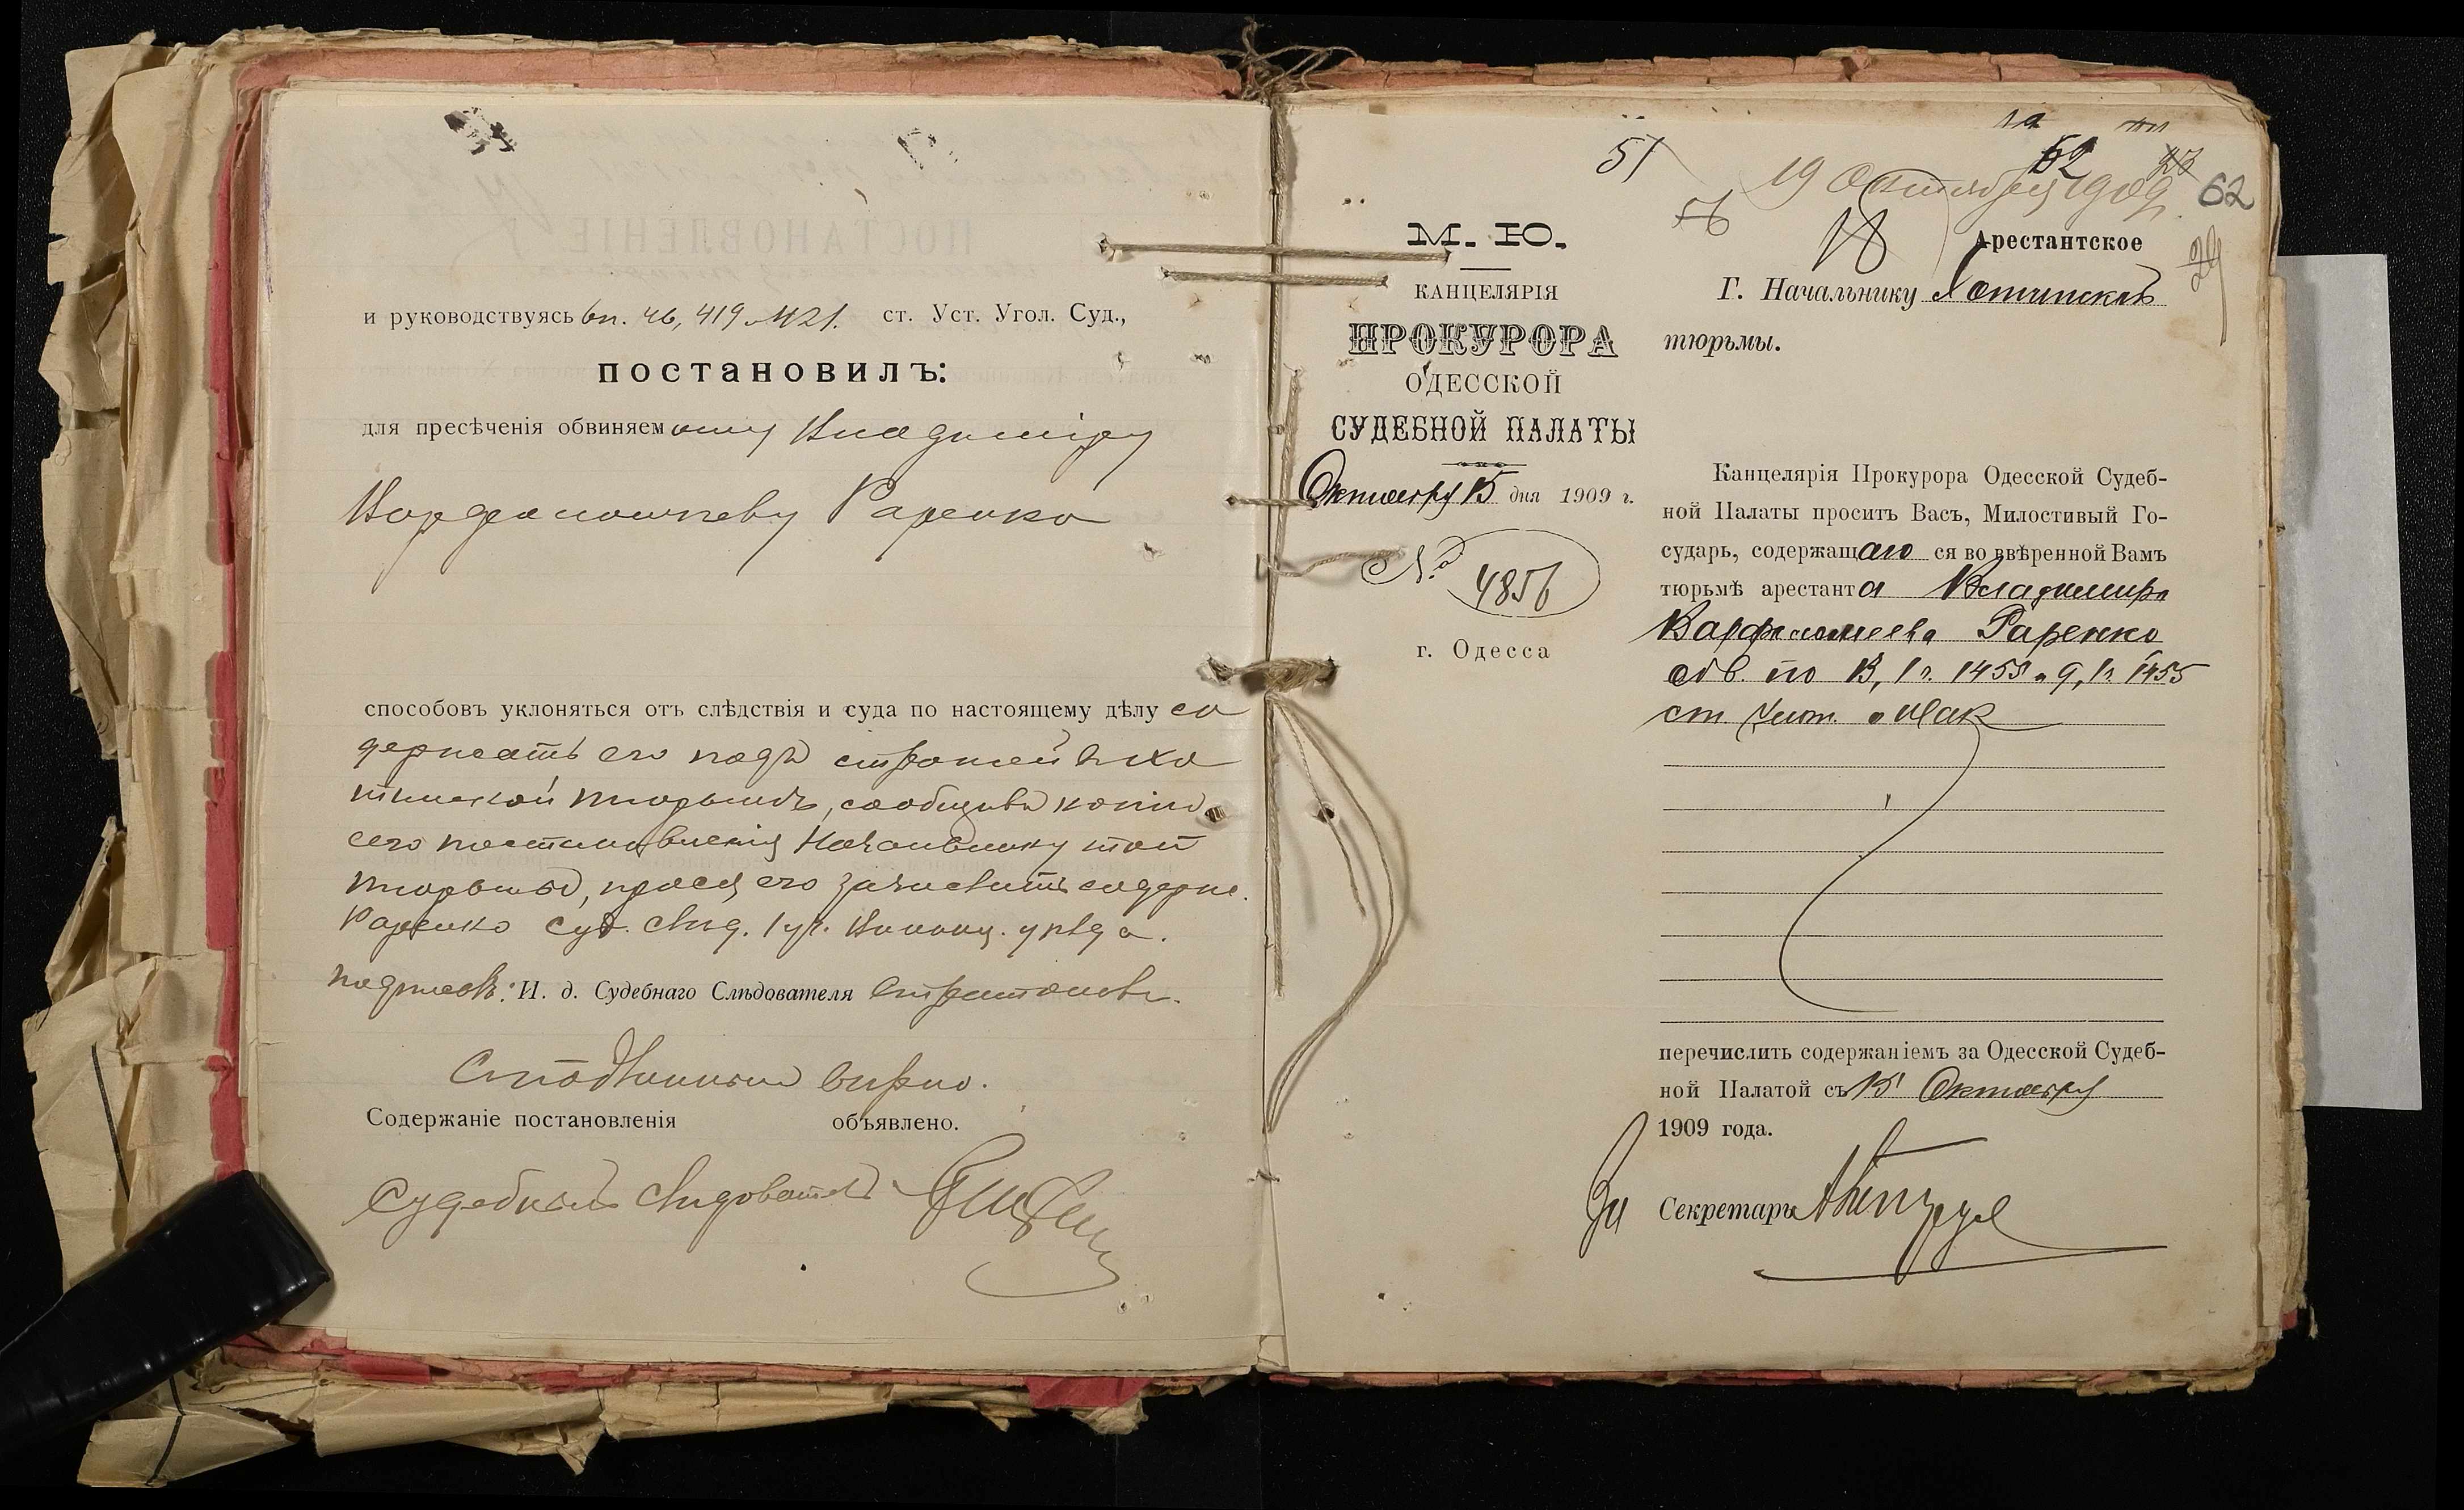 и руководствуясь вп. 46, 419 и 421. ст. Уст. Угол. Суд.,
ПОСТАНОВИЛЪ:
для пресѣченія обвиняемому Владиміру
Варфоломѣеву Раренко
способовъ уклоняться отъ слѣдствія и суда по настоящему дѣлу со
держать его подъ стражей въ Хо
тинской тюрьмѣ, сообщивъ копію
сего постановленія Начальнику той
тюрьмы, прося его зачислить содерж.
Раренко Суд. Слѣд. 1 уч. уѣзда.
подписалъ: И. д. Судебнаго Слѣдователя
Съ подлиннымъ вѣрно.
Содержаніе постановленія объявлено.
Судебный Слѣдователь
51
62
19 Октября 1909 г.
62
56
М. Ю.
КАНЦЕЛЯРІЯ
ПРОКУРОРА
ОДЕССКОЙ
СУДЕБНОЙ ПАЛАТЫ
Октября 15 дня 1909 г.
№ 4856
г. Одесса
Арестантское
Г. Начальнику Хотинской
тюрьмы.
Канцелярія Прокурора Одесской Судеб-
ной Палаты проситъ Васъ, Милостивый Го-
сударь, содержащаго ся во ввѣренной Вамъ
тюрьмѣ арестанта Владимира
Варфоломеева Раренко
обв. по 13, 1 ч. 1455 и 9, 1 ч. 1455
ст. Улож. о Нак
перечислить содержаніемъ за Одесской Судеб-
ной Палатой съ 15 Октября
1909 года.
За Секретаря